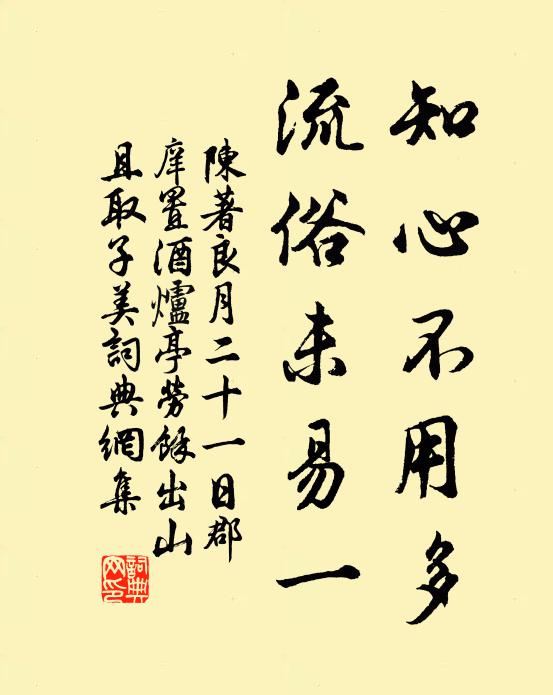 知心不用多
流俗未易一
陳著良月二十一日郡
庠置酒爐亭勞餘出山
且取子美詞典網集
詞典
网印